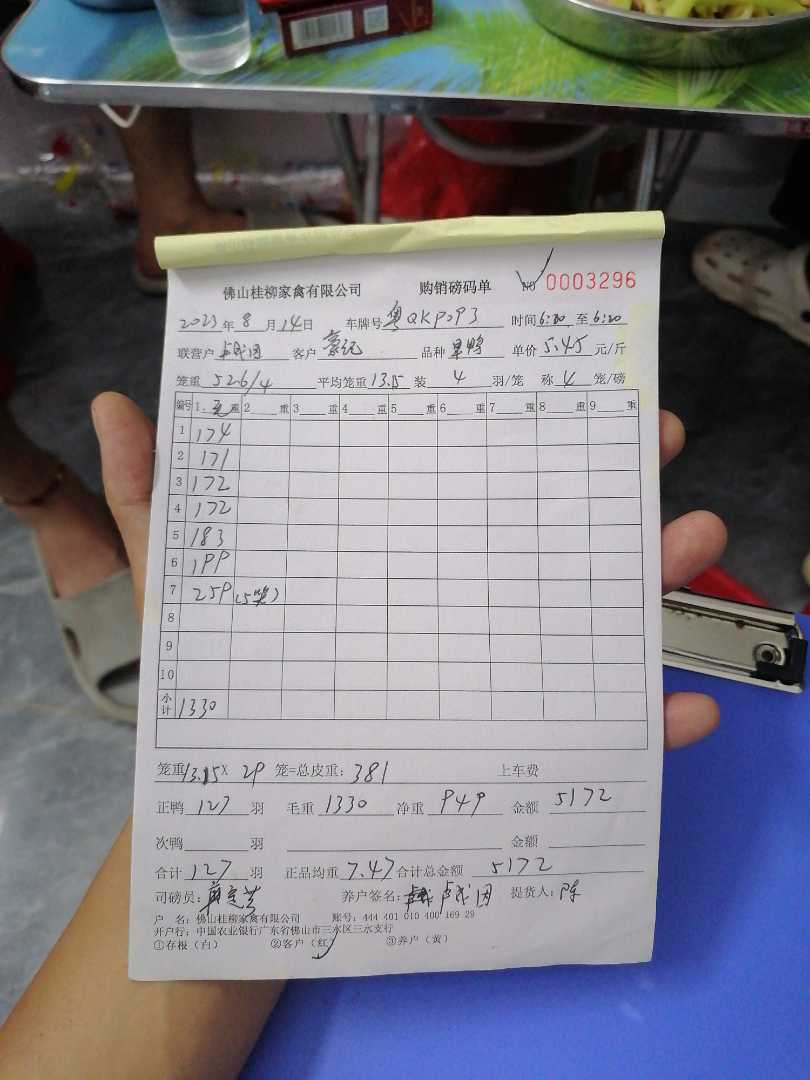 佛山桂柳家禽有限公司 购销磅码单 NO 0003296
2023年 8 月 14日 车牌号 粤QKP093 时间 6:20 至 6:20
联营户 卢成团 客户 品种 单价 5.45 元/斤
笼重 526/4 平均笼重 13.15 装 4 羽/笼 称 4 笼/磅
编号 1 毛 重 2 重 3 重 4 重 5 重 6 重 7 重 8 重 9 重
1 174
2 171
3 172
4 172
5 183
6 199
7 259 (5笼)
8
9
10
小计 1330
笼重 13.15 X 29 笼=总皮重: 381 上车费
正鸭 127 羽 毛重 1330 净重 949 金额 5172
次鸭 羽 金额
合计 127 羽 正品均重 7.47 合计总金额 5172
司磅员: 养户签名: 卢成团 提货人: 陈
户 名: 佛山桂柳家禽有限公司 账号: 444 401 010 400 169 29
开户行: 中国农业银行广东省佛山市三水区三水支行
①存根(白) ②客户(红) ③养户(黄)